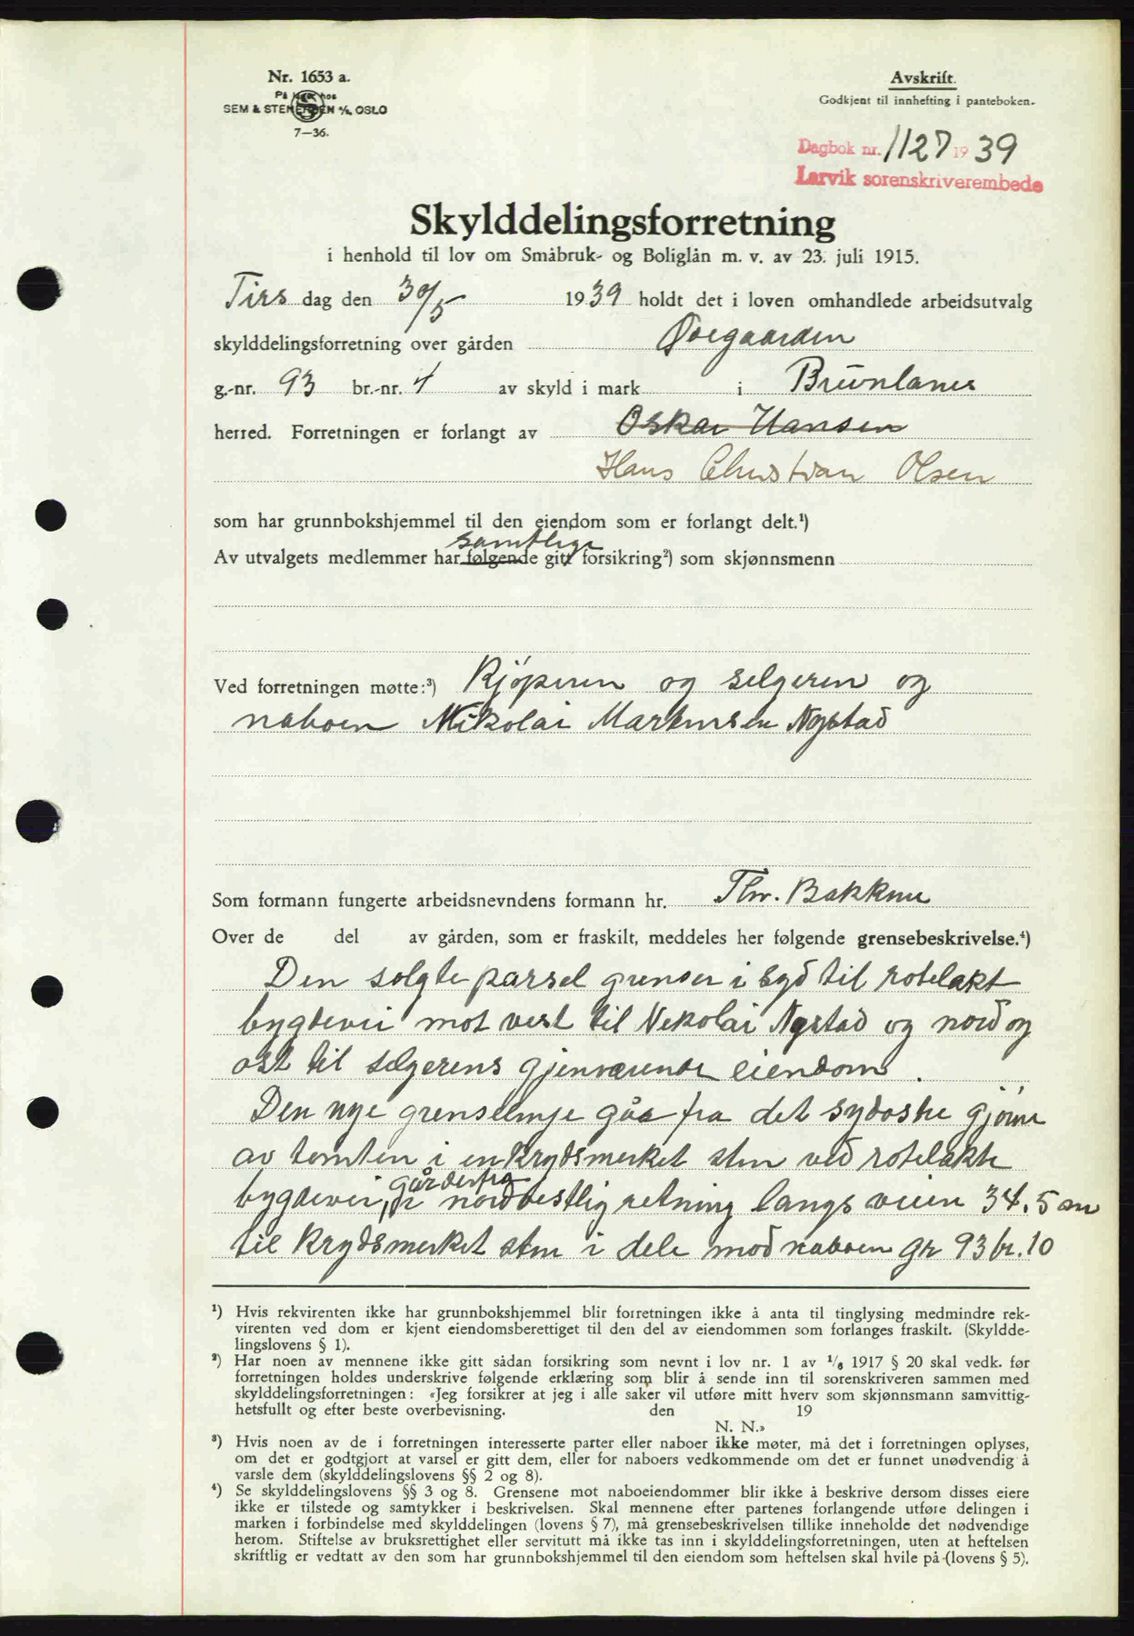 Nr. 1653 a.
På lager hos
SEM & STENERSEN A/S, OSLO
7—36.
Avskrift.
Godkjent til innhefting i panteboken.
Dagbok nr. 1127 1939
Larvik sorenskriverembede
Skylddelingsforretning
i henhold til lov om Småbruk- og Boliglån m. v. av 23. juli 1915.
Tirs dag den 30/5 1939 holdt det i loven omhandlede arbeidsutvalg
skylddelingsforretning over gården Øvegaarden
g.-nr. 93 br.-nr. 4 av skyld i mark i Brunlanes
herred. Forretningen er forlangt av Oskar Hansen
Hans Christian Olsen
som har grunnbokshjemmel til den eiendom som er forlangt delt.¹)
samtlige
Av utvalgets medlemmer har følgende gitt forsikring²) som skjønnsmenn
Ved forretningen møtte:³) Kjöperen og selgeren og
naboen Nikolai Markusen Nystad
Som formann fungerte arbeidsnevndens formann hr. Thv. Bakkene
Over de del av gården, som er fraskilt, meddeles her følgende grensebeskrivelse.⁴)
Den solgte parsel grenser i syd til rodelakt
bygdevei mot vest til Nekolai Nystad og nord og
ost til selgerens gjenværende eiendom.
Den nye grenselinje går fra det sydostre gjörne
av tomten i en krydsmerket sten ved rodelakte
gårderfra
bygdevei, i nordvestlig retning langs veien 34.5 m
til krydsmerket sten i dele mod naboen gr 93 br. 10
¹) Hvis rekvirenten ikke har grunnbokshjemmel blir forretningen ikke å anta til tinglysing medmindre rek-
virenten ved dom er kjent eiendomsberettiget til den del av eiendommen som forlanges fraskilt. (Skyldde-
lingslovens § 1).
²) Har noen av mennene ikke gitt sådan forsikring som nevnt i lov nr. 1 av 1/6 1917 § 20 skal vedk. før
forretningen holdes underskrive følgende erklæring som blir å sende inn til sorenskriveren sammen med
skylddelingsforretningen: «Jeg forsikrer at jeg i alle saker vil utføre mitt hverv som skjønnsmann samvittig-
hetsfullt og efter beste overbevisning. den 19
N. N.»
³) Hvis noen av de i forretningen interesserte parter eller naboer ikke møter, må det i forretningen oplyses,
om det er godtgjort at varsel er gitt dem, eller for naboers vedkommende om det er funnet unødvendig å
varsle dem (skylddelingslovens §§ 2 og 8).
⁴) Se skylddelingslovens §§ 3 og 8. Grensene mot naboeiendommer blir ikke å beskrive dersom disses eiere
ikke er tilstede og samtykker i beskrivelsen. Skal mennene efter partenes forlangende utføre delingen i
marken i forbindelse med skylddelingen (lovens § 7), må grensebeskrivelsen tillike inneholde det nødvendige
herom. Stiftelse av bruksrettighet eller servitutt må ikke tas inn i skylddelingsforretningen, uten at heftelsen
skriftlig er vedtatt av den som har grunnbokshjemmel til den eiendom som heftelsen skal hvile på (lovens § 5).